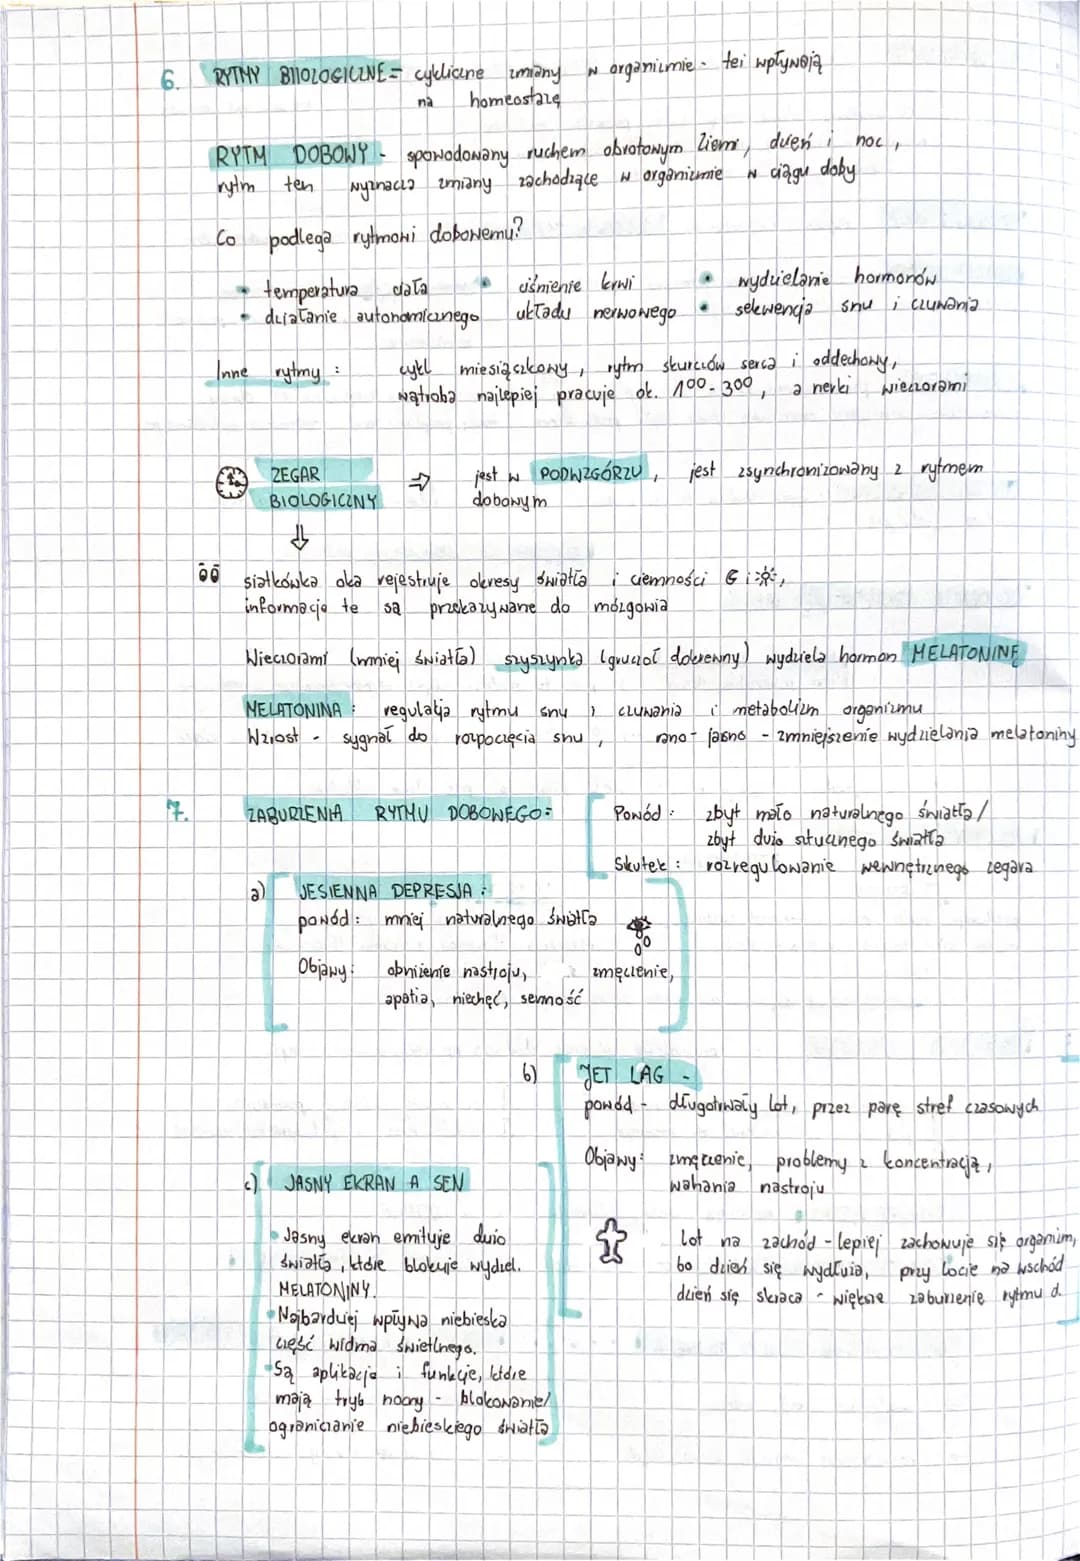 6. RYTMY BIIOLOGICZNE = cykliczne zmiany w organizmie - też wpływają
na homeostazę
RYTM DOBOWY - spowodowany ruchem obrotowym Ziemi, dzień i noc,
rytm ten wyznacza zmiany zachodzące w organizmie w ciągu doby
Co podlega rytmowi dobowemu?
• temperatura ciała • ciśnienie krwi • wydzielanie hormonów
• działanie autonomicznego układu nerwowego • sekwencja snu i czuwania
Inne rytmy : cykl miesiączkowy, rytm skurczów serca i oddechowy,
wątroba najlepiej pracuje ok. 1⁰⁰-3⁰⁰, a nerki wieczorami
ZEGAR ⇒ jest w PODWZGÓRZU, jest zsynchronizowany z rytmem
BIOLOGICZNY dobowym
⇓
siatkówka oka rejestruje okresy światła i ciemności i ,
informacje te są przekazywane do mózgowia
Wieczorami (mniej światła) szyszynka (gruczoł dokrewny) wydziela hormon MELATONINĘ
MELATONINA : regulacja rytmu snu i czuwania i metabolizm organizmu
Wzrost - sygnał do rozpoczęcia snu, rano - jasno - zmniejszenie wydzielania melatoniny
7. ZABURZENIA RYTMU DOBOWEGO: Powód : zbyt mało naturalnego światła/
zbyt dużo sztucznego światła
Skutek : rozregulowanie wewnętrznego zegara
a) JESIENNA DEPRESJA :
powód : mniej naturalnego światła
Objawy: obniżenie nastroju, zmęczenie,
apatia, niechęć, senność
b) JET LAG -
powód - długotrwały lot, przez parę stref czasowych
Objawy: zmęczenie, problemy z koncentracją,
wahania nastroju
lot na zachód - lepiej zachowuje się organizm,
bo dzień się wydłuża, przy locie na wschód
dzień się skraca - większe zaburzenie rytmu d.
c) JASNY EKRAN A SEN
• Jasny ekran emituje dużo
światła, które blokuje wydziel.
MELATONINY.
• Najbardziej wpływa niebieska
część widma świetlnego.
• Są aplikacje i funkcje, które
mają tryb nocny - blokowanie/
ograniczanie niebieskiego światła